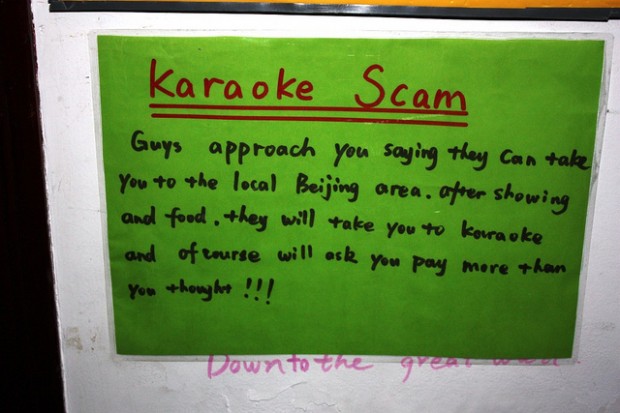 Karaoke Scam
Guys approach you saying they can take
you to the local Beijing area. after showing
and food. they will take you to karaoke
and of course will ask you pay more than
you thought !!!
Down to the great